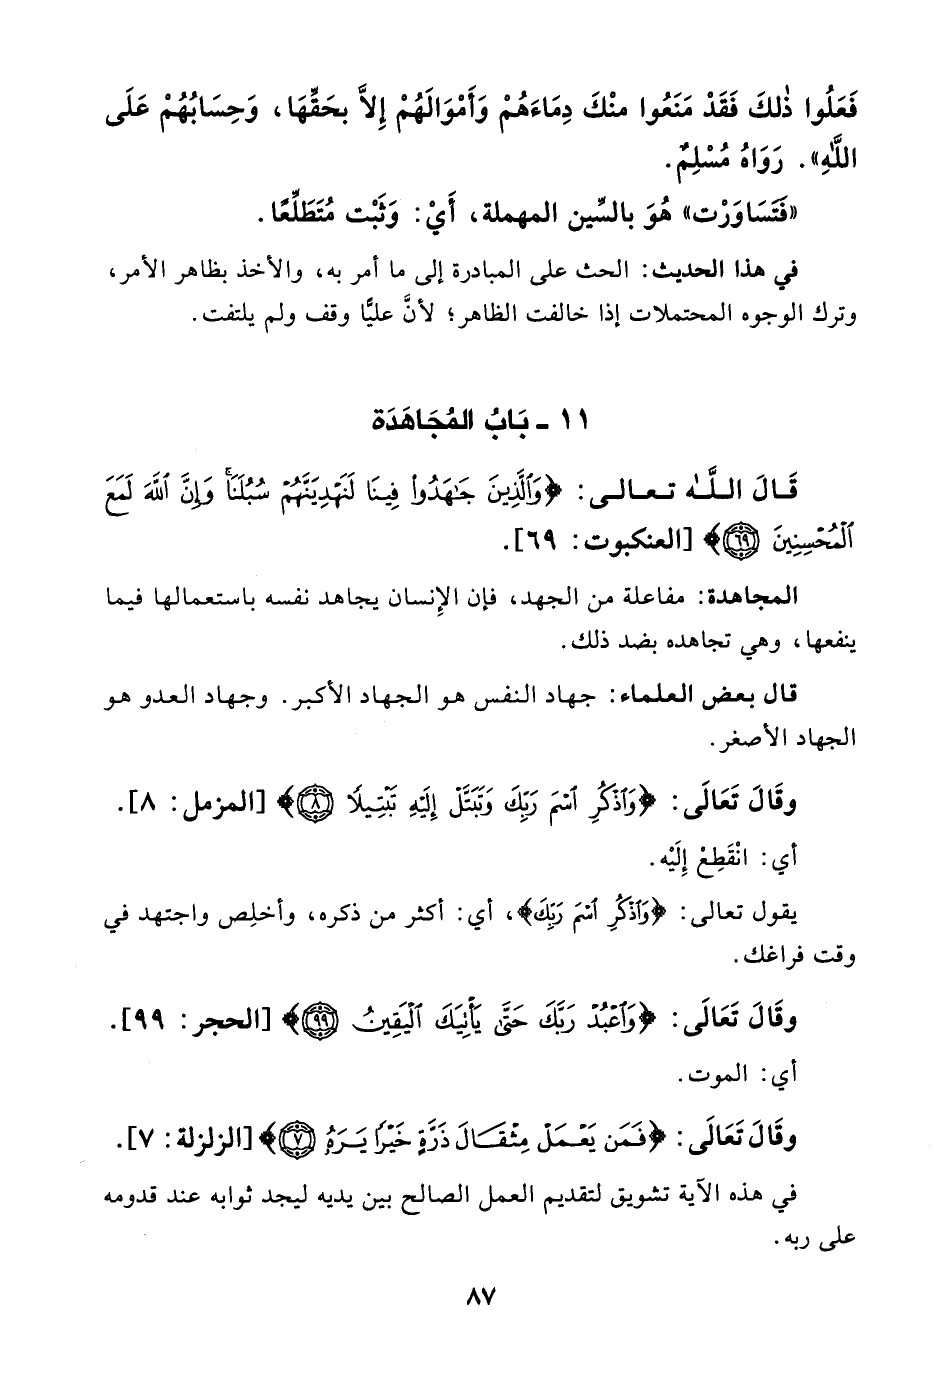 فَعَلُوا ذٰلكَ فَقَدْ مَنَعُوا منْكَ دِمَاءَهُمْ وَأَمْوَالَهُمْ إِلاَّ بحَقِّهَا، وَحِسَابُهُمْ عَلَى
اللَّهِ». رَوَاهُ مُسْلِمٌ.
«فَتَسَاوَرْت» هُوَ بالسِّين المهملة، أَيْ: وَثَبْت مُتَطَلِّعًا.
في هذا الحديث: الحث على المبادرة إلى ما أمر به، والأخذ بظاهر الأمر،
وترك الوجوه المحتملات إذا خالفت الظاهر؛ لأنَّ عليًّا وقف ولم يلتفت.
١١ - بَابُ المُجَاهَدَة
قَالَ اللَّه تعالى: ﴿وَٱلَّذِينَ جَٰهَدُوا۟ فِينَا لَنَهْدِيَنَّهُمْ سُبُلَنَا ۚ وَإِنَّ ٱللَّهَ لَمَعَ
ٱلْمُحْسِنِينَ ٦٩﴾ [العنكبوت: ٦٩].
المجاهدة: مفاعلة من الجهد، فإن الإنسان يجاهد نفسه باستعمالها فيما
ينفعها، وهي تجاهده بضد ذلك.
قال بعض العلماء: جهاد النفس هو الجهاد الأكبر. وجهاد العدو هو
الجهاد الأصغر.
وقَالَ تَعَالَى: ﴿وَٱذْكُرِ ٱسْمَ رَبِّكَ وَتَبَتَّلْ إِلَيْهِ تَبْتِيلًا ٨﴾ [المزمل: ٨].
أي: انْقَطِعْ إِلَيْه.
يقول تعالى: ﴿وَٱذْكُرِ ٱسْمَ رَبِّكَ﴾، أي: أكثر من ذكره، وأخلِص واجتهد في
وقت فراغك.
وقَالَ تَعَالَى: ﴿وَٱعْبُدْ رَبَّكَ حَتَّىٰ يَأْتِيَكَ ٱلْيَقِينُ ٩٩﴾ [الحجر: ٩٩].
أي: الموت.
وقَالَ تَعَالَى: ﴿فَمَن يَعْمَلْ مِثْقَالَ ذَرَّةٍ خَيْرًا يَرَهُۥ ٧﴾ [الزلزلة: ٧].
في هذه الآية تشويق لتقديم العمل الصالح بين يديه ليجد ثوابه عند قدومه
على ربه.
٨٧